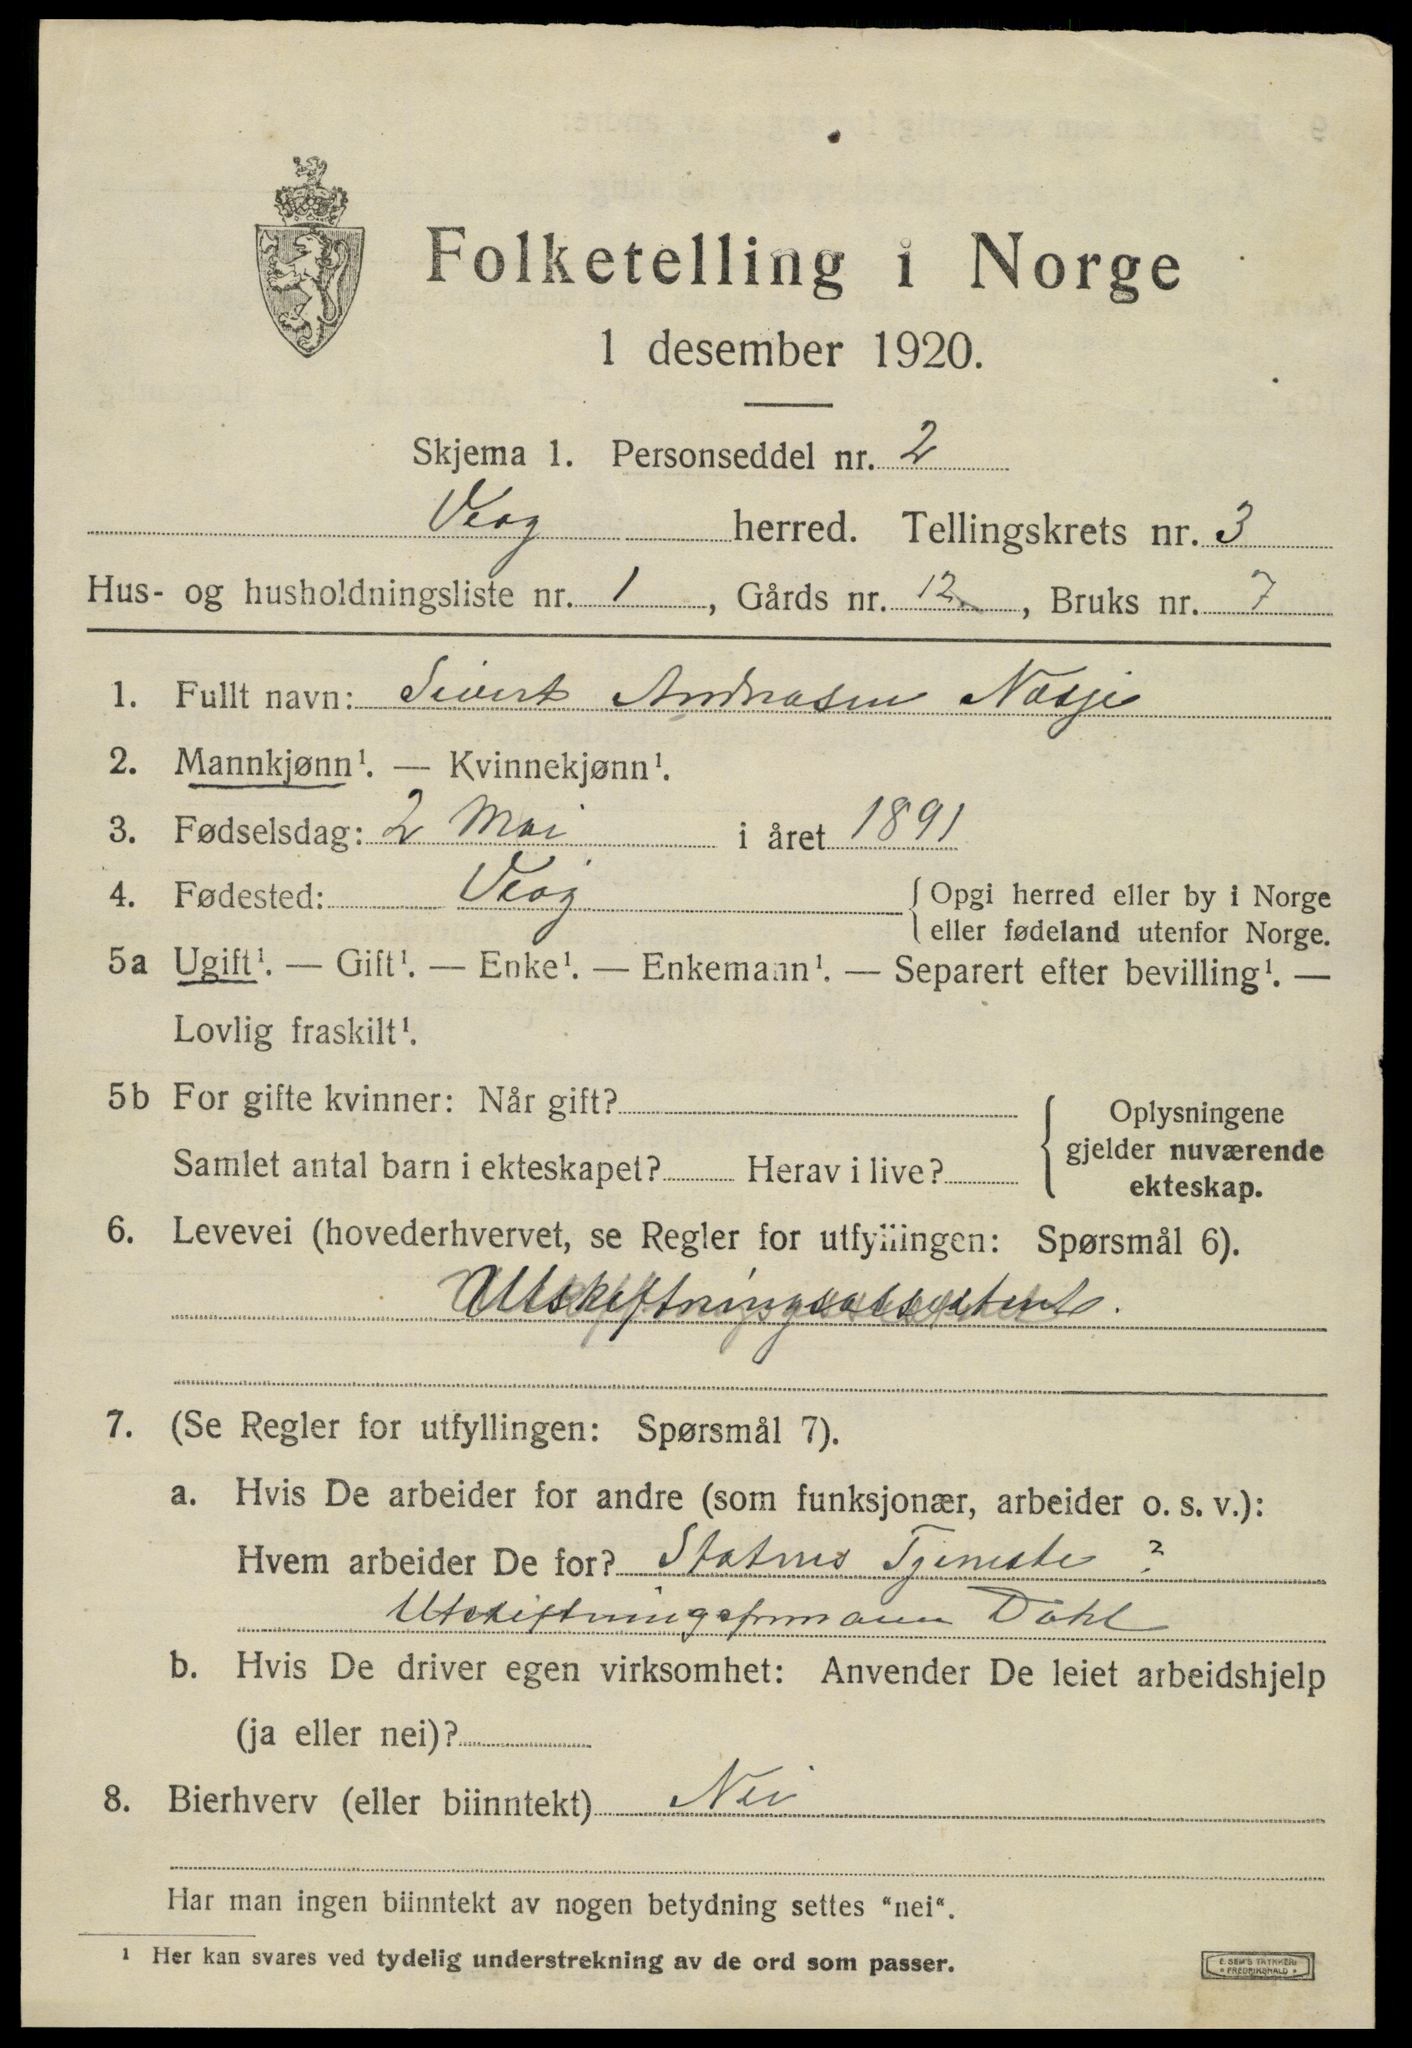 Folketelling i Norge
1 desember 1920.
Skjema 1. Personseddel nr. 2
Veøy herred. Tellingskrets nr. 3
Hus- og husholdningsliste nr. 1, Gårds nr. 12, Bruks nr. 7
1. Fullt navn: Sivert Andreasen Næsje
2. Mannkjønn¹. — Kvinnekjønn¹.
3. Fødselsdag: 2 Mai i året 1891
4. Fødested: Veøy { Opgi herred eller by i Norge
eller fødeland utenfor Norge.
5a Ugift¹. — Gift¹. — Enke¹. — Enkemann¹. — Separert efter bevilling¹. —
Lovlig fraskilt¹.
5b For gifte kvinner: Når gift?
Samlet antal barn i ekteskapet? Herav i live?
{ Oplysningene
gjelder nuværende
ekteskap.
6. Levevei (hovederhvervet, se Regler for utfyllingen: Spørsmål 6).
Utskiftningsassistent.
7. (Se Regler for utfyllingen: Spørsmål 7).
a. Hvis De arbeider for andre (som funksjonær, arbeider o. s. v.):
Hvem arbeider De for? Statens Tjeneste ?
Utskiftningsformann Dahl
b. Hvis De driver egen virksomhet: Anvender De leiet arbeidshjelp
(ja eller nei)?
8. Bierhverv (eller biinntekt) Nei
Har man ingen biinntekt av nogen betydning settes "nei".
¹ Her kan svares ved tydelig understrekning av de ord som passer.
E. SEM'S TRYKKERI
* FREDRIKSHALD *